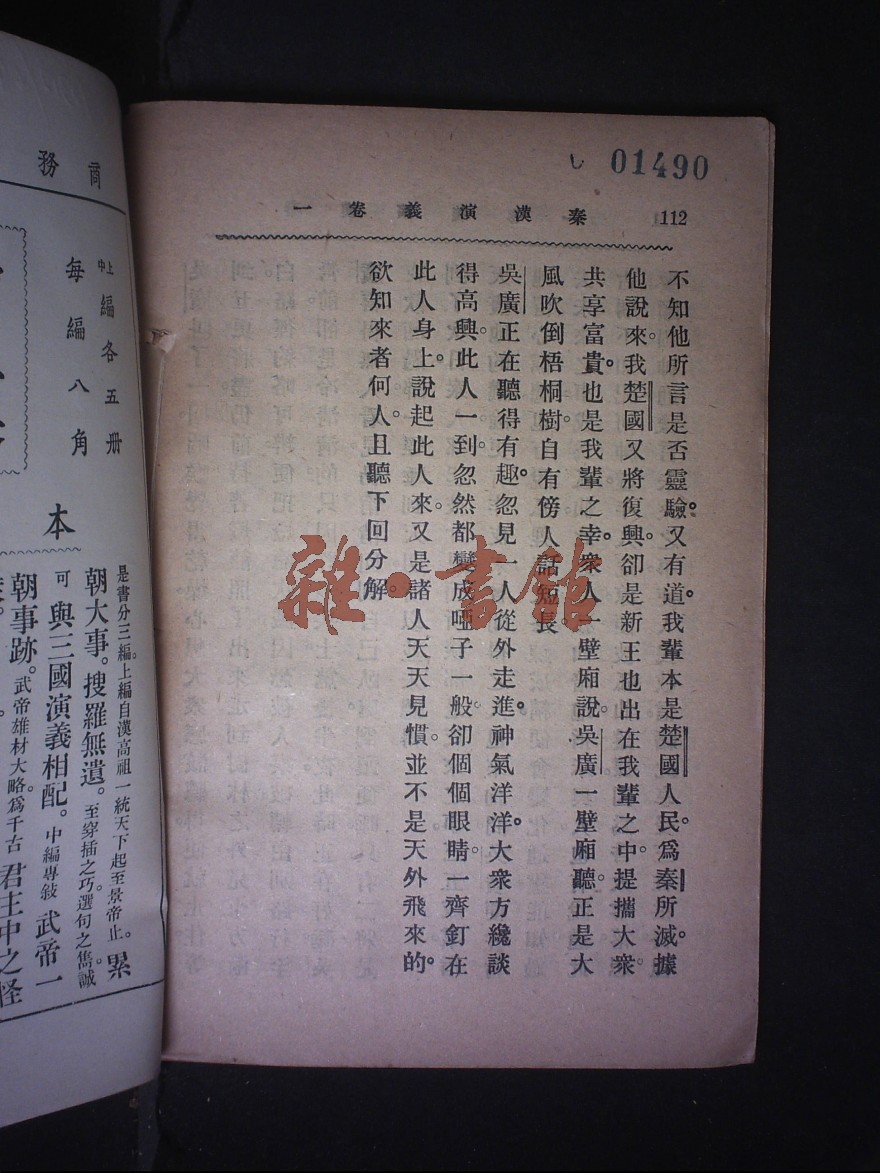 01490
秦漢演義卷一
112
不知他所言是否靈驗。又有道。我輩本是楚國人民。爲秦所滅。據
他說來。我楚國又將復興。卻是新王也出在我輩之中。提攜大衆。
共享富貴。也是我輩之幸。衆人一壁廂說。吳廣一壁廂聽。正是大
風吹倒梧桐樹。自有傍人話短長。
吳廣正在聽得有趣。忽見一人從外走進。神氣洋洋。大衆方纔談
得高興。此人一到。忽然都變成啞子一般。卻個個眼睛。一齊釘在
此人身上。說起此人來。又是諸人天天見慣。並不是天外飛來的。
欲知來者何人。且聽下回分解。
雜·書館
商務
上中編各五册
每編八角
本
是書分三編。上編自漢高祖一統天下起至景帝止。累
朝大事。搜羅無遺。至穿插之巧選句之雋誠
可與三國演義相配。中編專敍武帝一
朝事跡。武帝雄材大略爲千古君主中之怪